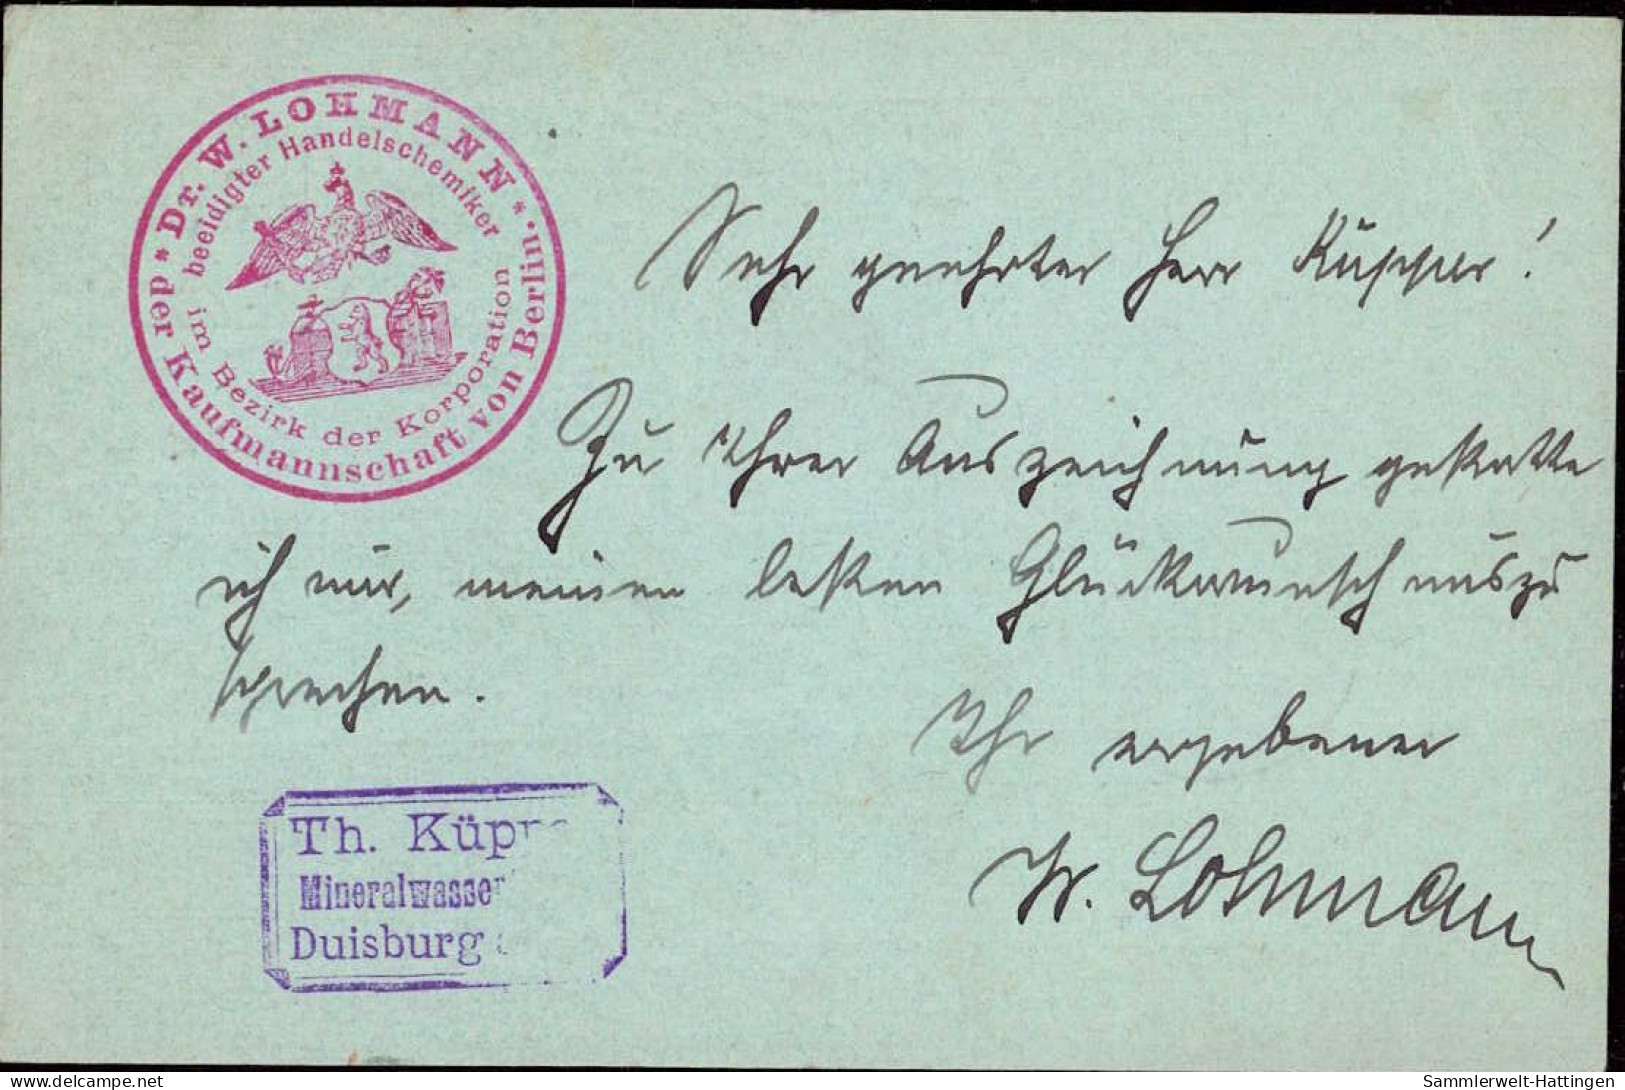 * Dr. W. LOHMANN *
beeidigter Handelschemiker
im Bezirk der Korporation
der Kaufmannschaft von Berlin.
Sehr geehrter Herr Küpper!
Zu Ihrer Auszeichnung gestatte
ich mir, meinen besten Glückwunsch auszu
sprechen.
Ihr ergebener
W. Lohmann
Th. Küpp
Mineralwasser
Duisburg
Sammlerwelt-Hattingen
delcampe.net